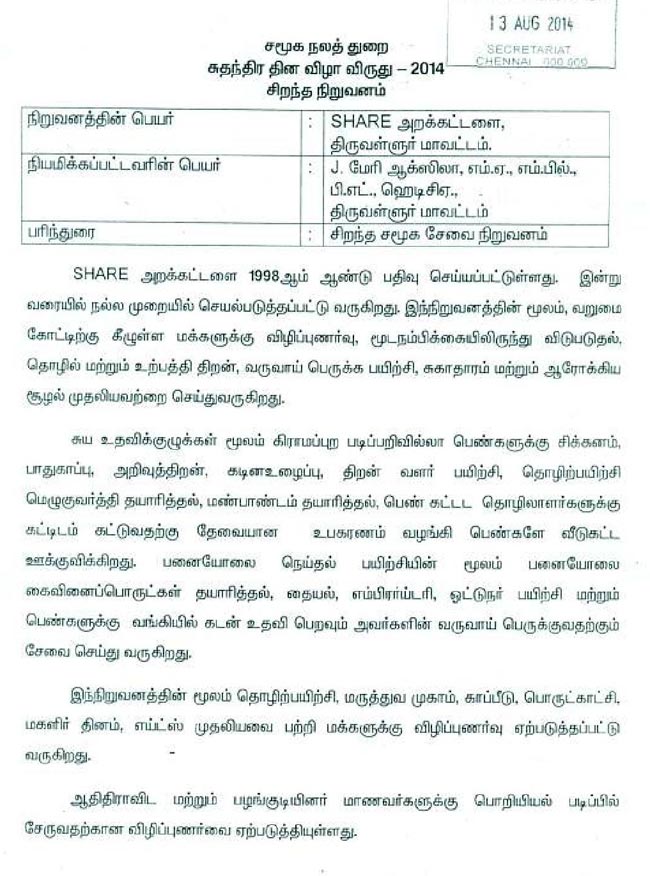 13 AUG 2014
SECRETARIAT
CHENNAI
சமூக நலத் துறை
சுதந்திர தின விழா விருது – 2014
சிறந்த நிறுவனம்
நிறுவனத்தின் பெயர் : SHARE அறக்கட்டளை,
திருவள்ளுர் மாவட்டம்.
நியமிக்கப்பட்டவரின் பெயர் : J. மேரி ஆக்ஸிலா, எம்.ஏ., எம்.பில்.,
பி.எட்., ஹெடிசிஏ.,
திருவள்ளுர் மாவட்டம்
பரிந்துரை : சிறந்த சமூக சேவை நிறுவனம்
SHARE அறக்கட்டளை 1998ஆம் ஆண்டு பதிவு செய்யப்பட்டுள்ளது. இன்று
வரையில் நல்ல முறையில் செயல்படுத்தப்பட்டு வருகிறது. இந்நிறுவனத்தின் மூலம், வறுமை
கோட்டிற்கு கீழுள்ள மக்களுக்கு விழிப்புணர்வு, மூடநம்பிக்கையிலிருந்து விடுபடுதல்,
தொழில் மற்றும் உற்பத்தி திறன், வருவாய் பெருக்க பயிற்சி, சுகாதாரம் மற்றும் ஆரோக்கிய
சூழல் முதலியவற்றை செய்துவருகிறது.
சுய உதவிக்குழுக்கள் மூலம் கிராமப்புற படிப்பறிவில்லா பெண்களுக்கு சிக்கனம்,
பாதுகாப்பு, அறிவுத்திறன், கடினஉழைப்பு, திறன் வளர் பயிற்சி, தொழிற்பயிற்சி
மெழுகுவர்த்தி தயாரித்தல், மண்பாண்டம் தயாரித்தல், பெண் கட்டட தொழிலாளர்களுக்கு
கட்டிடம் கட்டுவதற்கு தேவையான உபகரணம் வழங்கி பெண்களே வீடுகட்ட
ஊக்குவிக்கிறது. பனையோலை நெய்தல் பயிற்சியின் மூலம் பனையோலை
கைவினைப்பொருட்கள் தயாரித்தல், தையல், எம்பிராய்டரி, ஓட்டுநர் பயிற்சி மற்றும்
பெண்களுக்கு வங்கியில் கடன் உதவி பெறவும் அவர்களின் வருவாய் பெருக்குவதற்கும்
சேவை செய்து வருகிறது.
இந்நிறுவனத்தின் மூலம் தொழிற்பயிற்சி, மருத்துவ முகாம், காப்பீடு, பொருட்காட்சி,
மகளிர் தினம், எய்ட்ஸ் முதலியவை பற்றி மக்களுக்கு விழிப்புணர்வு ஏற்படுத்தப்பட்டு
வருகிறது. -
ஆதிதிராவிட மற்றும் பழங்குடியினர் மாணவர்களுக்கு பொறியியல் படிப்பில்
சேருவதற்கான விழிப்புணர்வை ஏற்படுத்தியுள்ளது.